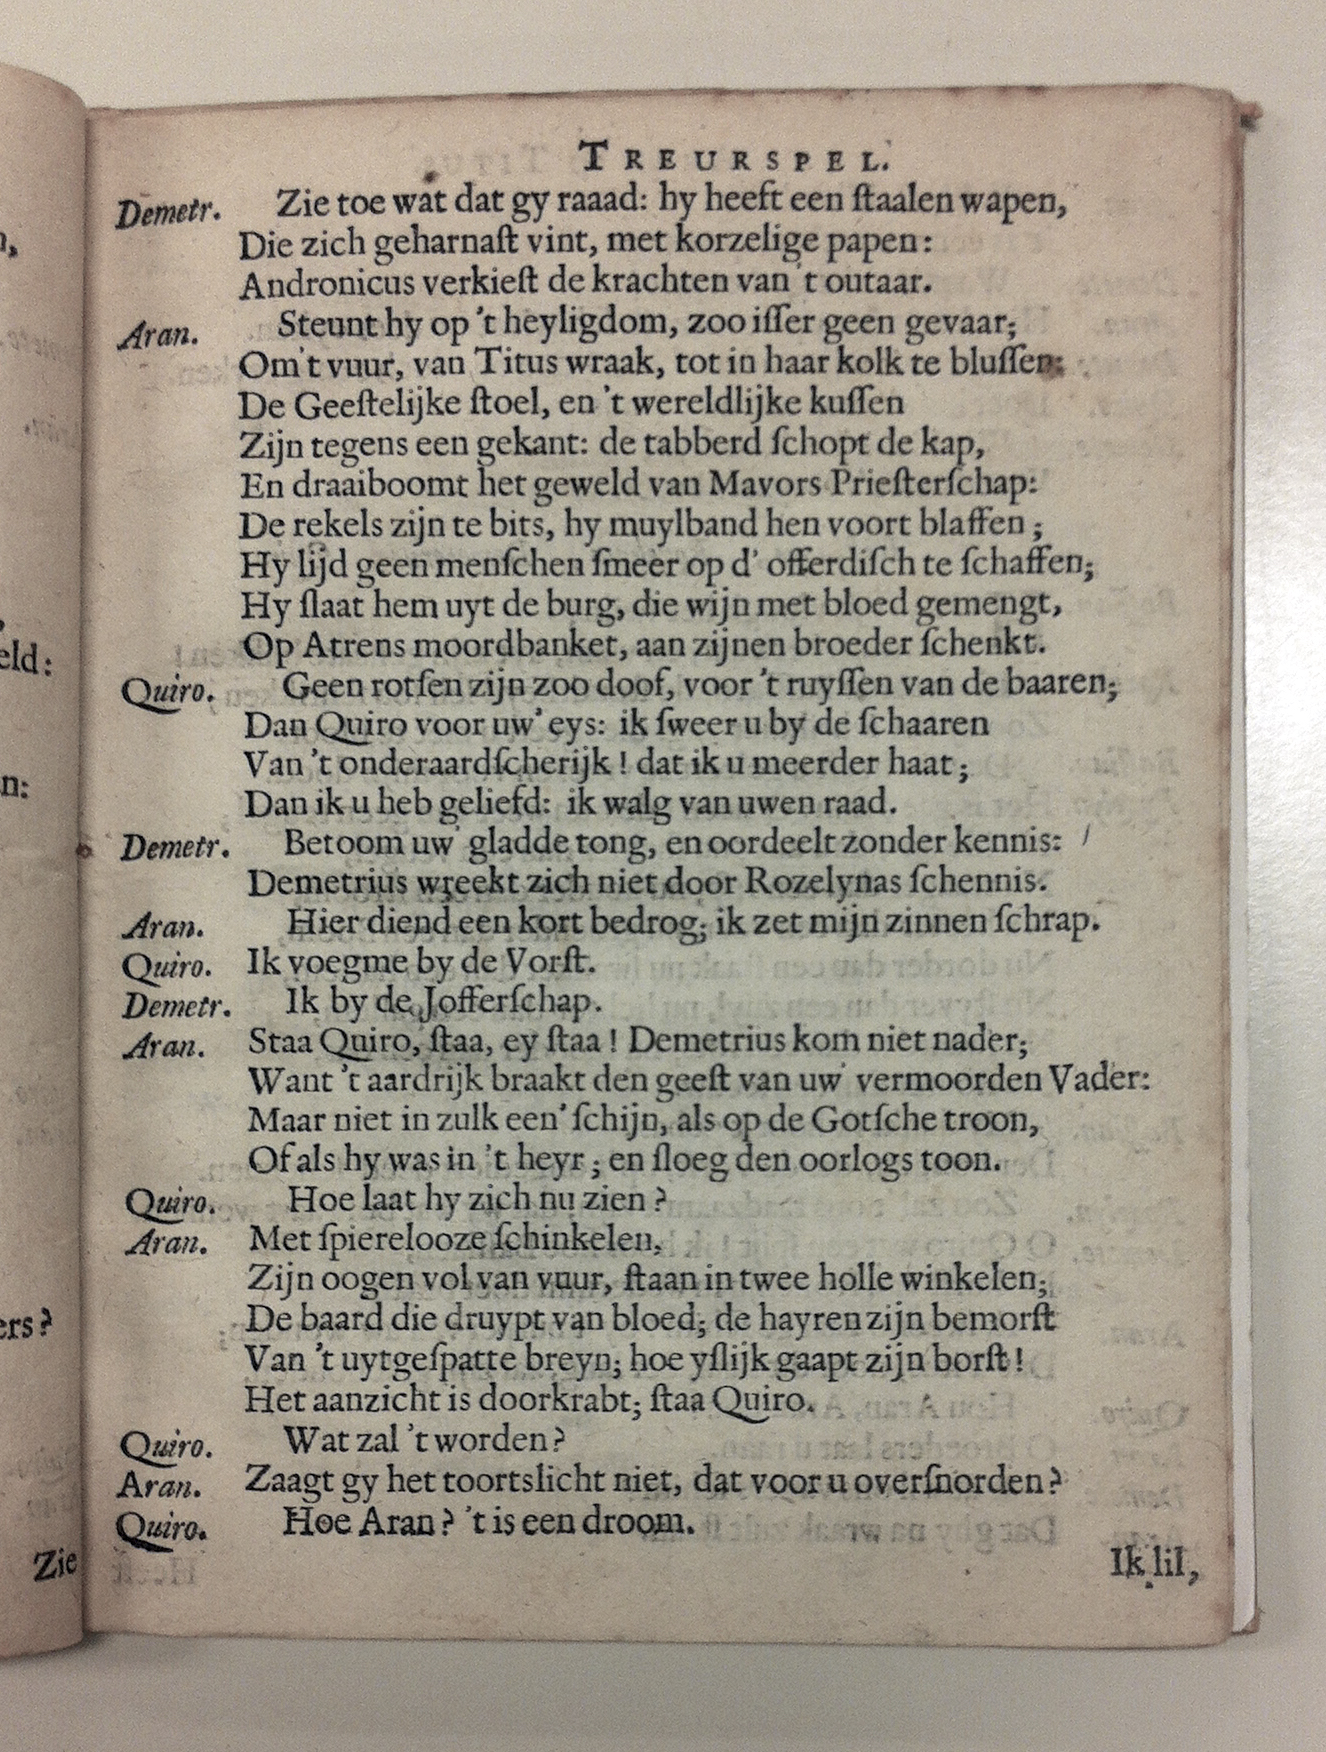 TREURSPEL.
Demetr. Zie toe wat dat gy raaad: hy heeft een ſtaalen wapen,
Die zich geharnaſt vint, met korzelige papen:
Andronicus verkieſt de krachten van 't outaar.
Aran. Steunt hy op 't heyligdom, zoo iſſer geen gevaar;
Om 't vuur, van Titus wraak, tot in haar kolk te bluſſen:
De Geeſtelijke ſtoel, en 't wereldlijke kuſſen
Zijn tegens een gekant: de tabberd ſchopt de kap,
En draaiboomt het geweld van Mavors Prieſterſchap:
De rekels zijn te bits, hy muylband hen voort blaffen;
Hy lijd geen menſchen ſmeer op d' offerdiſch te ſchaffen;
Hy ſlaat hem uyt de burg, die wijn met bloed gemengt,
Op Atrens moordbanket, aan zijnen broeder ſchenkt.
Quiro. Geen rotſen zijn zoo doof, voor 't ruyſſen van de baaren;
Dan Quiro voor uw' eys: ik ſweer u by de ſchaaren
Van 't onderaardſcherijk! dat ik u meerder haat;
Dan ik u heb geliefd: ik walg van uwen raad.
Demetr. Betoom uw' gladde tong, en oordeelt zonder kennis:
Demetrius wreekt zich niet door Rozelynas ſchennis.
Aran. Hier diend een kort bedrog; ik zet mijn zinnen ſchrap.
Quiro. Ik voegme by de Vorſt.
Demetr. Ik by de Jofferſchap.
Aran. Staa Quiro, ſtaa, ey ſtaa! Demetrius kom niet nader;
Want 't aardrijk braakt den geeſt van uw' vermoorden Vader:
Maar niet in zulk een' ſchijn, als op de Gotſche troon,
Of als hy was in 't heyr; en ſloeg den oorlogs toon.
Quiro. Hoe laat hy zich nu zien?
Aran. Met ſpierelooze ſchinkelen,
Zijn oogen vol van vuur, ſtaan in twee holle winkelen;
De baard die druypt van bloed; de hayren zijn bemorſt
Van 't uytgeſpatte breyn; hoe yſlijk gaapt zijn borſt!
Het aanzicht is doorkrabt; ſtaa Quiro.
Quiro. Wat zal 't worden?
Aran. Zaagt gy het toortslicht niet, dat voor u overſnorden?
Quiro. Hoe Aran? 't is een droom.
Ik lil,
eld:
n:
ers?
Zie